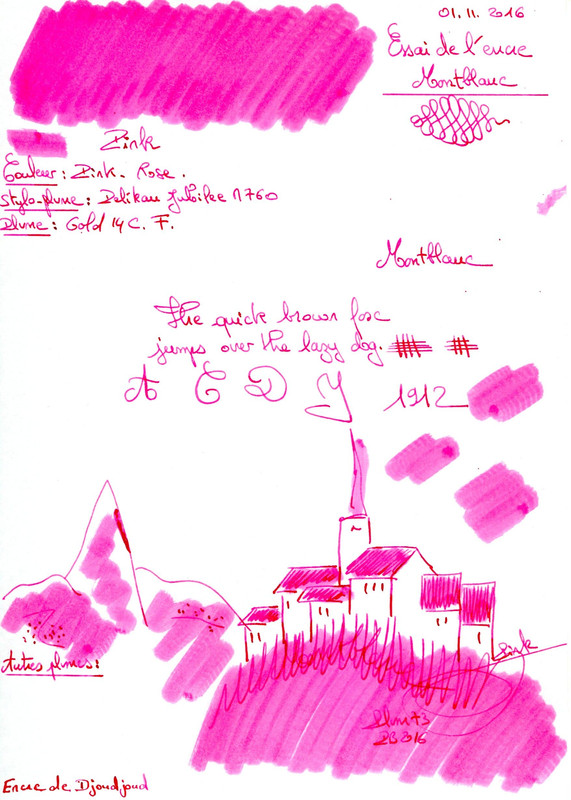 01.11.2016
Essai de l'encre
Montblanc
Pink
Couleur : Pink - Rose.
Stylo-plume : Pelikan Jubilee 1760
Plume : Gold 14 C. F.
Montblanc
The quick brown fox
jumps over the lazy dog.
A C D Y
1912
Pink
Autres plumes :
2016
Encre de Djoudjoud